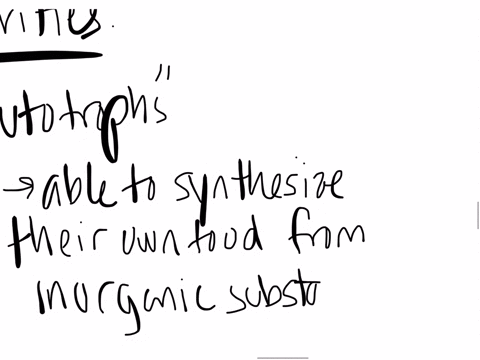 utotrophs"
→ able to synthesize
their own food from
inorganic substa